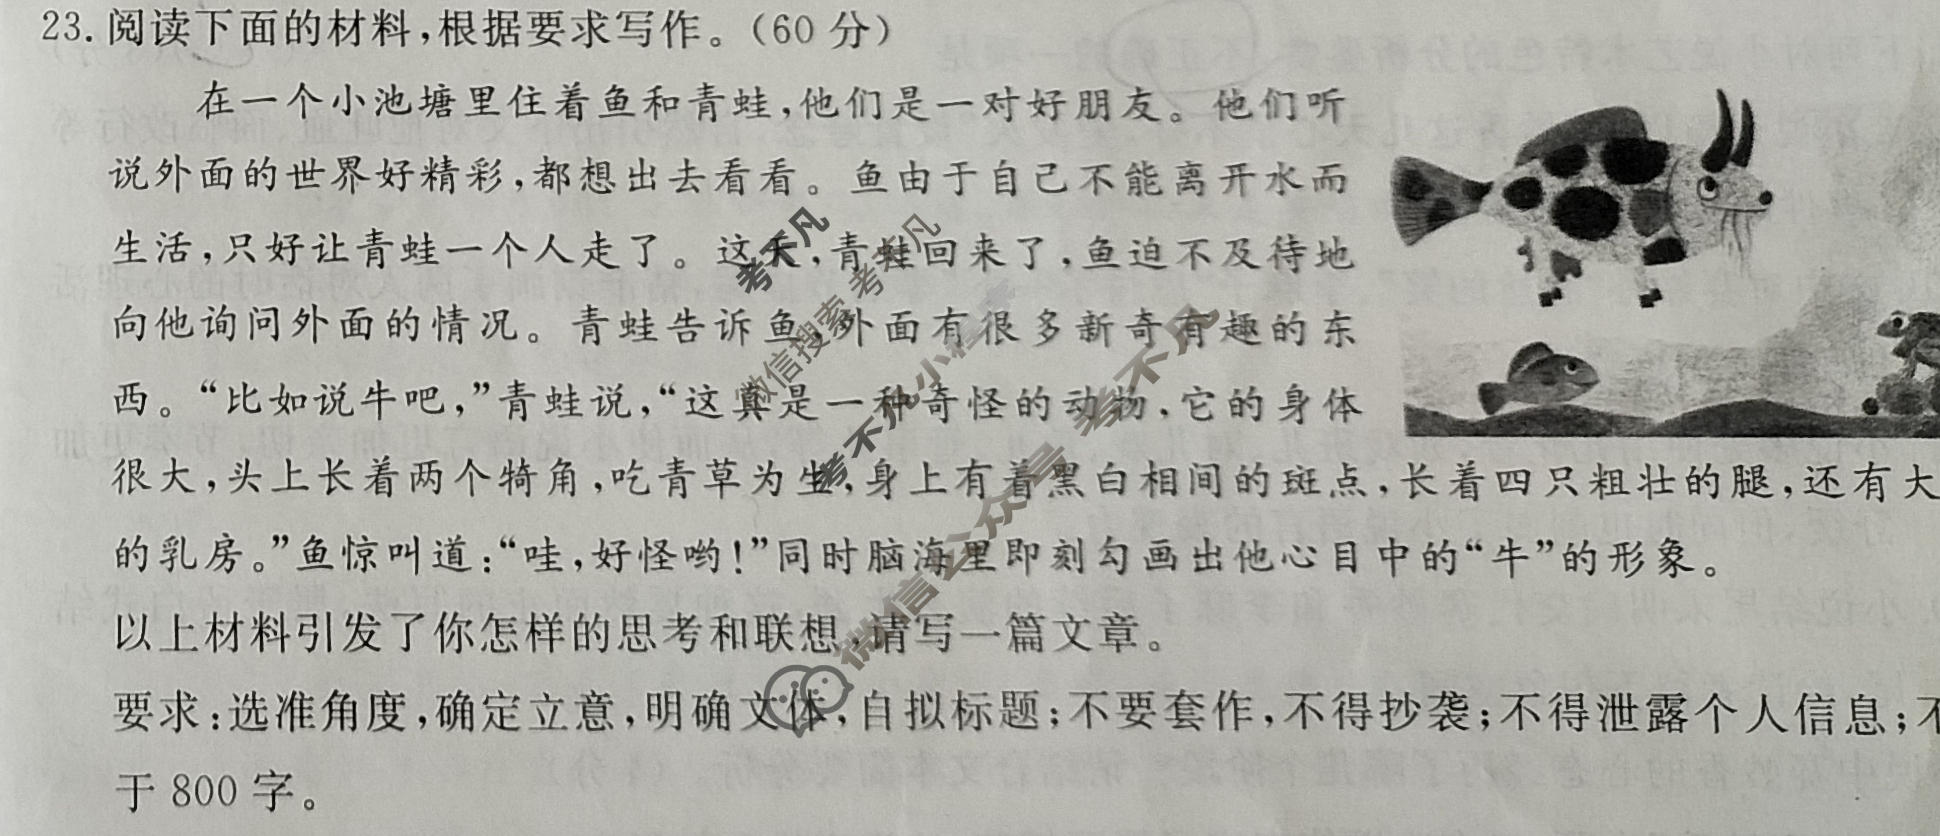 23. 阅读下面的材料，根据要求写作。（60 分）
在一个小池塘里住着鱼和青蛙，他们是一对好朋友。他们听
说外面的世界好精彩，都想出去看看。鱼由于自己不能离开水而
生活，只好让青蛙一个人走了。这天，青蛙回来了，鱼迫不及待地
向他询问外面的情况。青蛙告诉鱼，外面有很多新奇有趣的东
西。“比如说牛吧，”青蛙说，“这真是一种奇怪的动物，它的身体
很大，头上长着两个犄角，吃青草为生，身上有着黑白相间的斑点，长着四只粗壮的腿，还有大
的乳房。”鱼惊叫道：“哇，好怪哟！”同时脑海里即刻勾画出他心目中的“牛”的形象。
以上材料引发了你怎样的思考和联想，请写一篇文章。
要求：选准角度，确定立意，明确文体，自拟标题；不要套作，不得抄袭；不得泄露个人信息；不
于 800 字。
考不凡
微信搜索 考不凡
考不凡小程序
微信公众号 考不凡